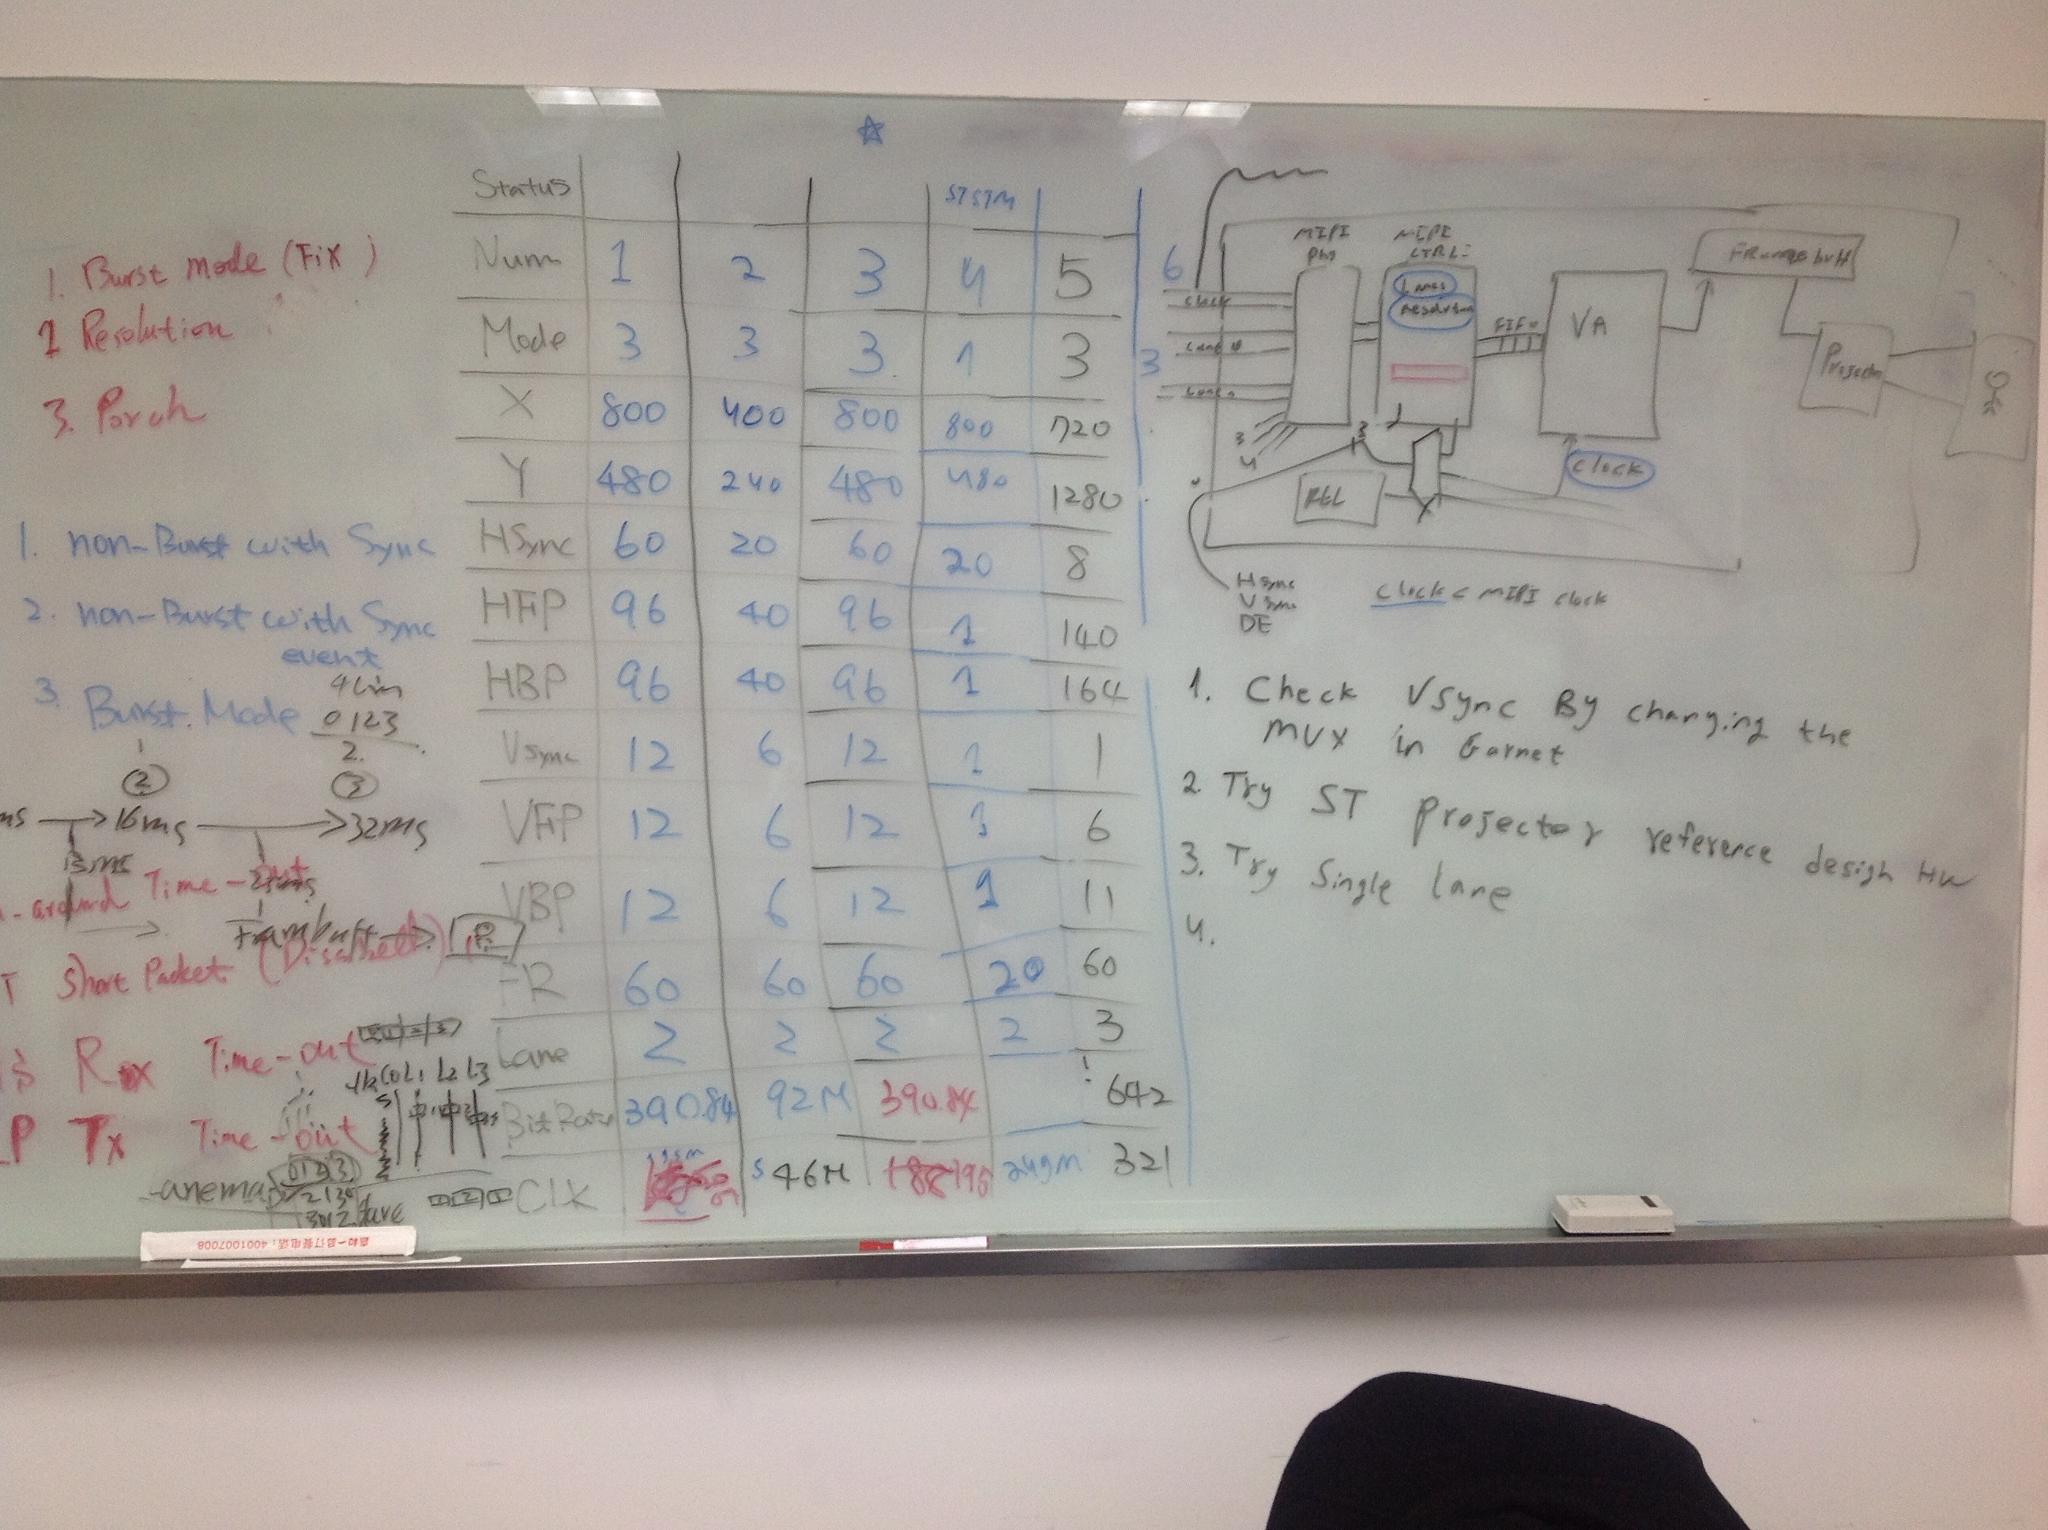 1. Burst mode (Fix)
2 Resolution
3. Porch
1. non-Burst with Sync
2. non-Burst with Sync
event
3. Burst Mode
4 Lin
0123
2.
②
③
ms → 16ms → 32ms
13ms
25ms
-around Time-out
Frambuff
T Short Packet. (Disabeld)
Rx Time-out
P Tx Time-out
L2 L3
0123
2130
3012
-anemap
Status STSTM
Num 1 2 3 4 5
Mode 3 3 3 1 3
X 800 400 800 800 720
Y 480 240 480 480 1280
HSync 60 20 60 20 8
HFP 96 40 96 1 140
HBP 96 40 96 1 164
Vsync 12 6 12 1 1
VFP 12 6 12 1 6
VBP 12 6 12 1 11
FR 60 60 60 20 60
Lane 2 2 2 2 3
BitRate 390.84 92M 390.84 642
CLK 46M 249M 321
6
3
MIPI
Phy
MIPI
CTRL
Lanes
Resolution
Clock
Lane 0
FIFO
VA
Framebuff
Projector
3
4
3
clock
Hsync
Vsync
DE
clock < MIPI clock
1. Check VSync By changing the
MUX in Garnet
2. Try ST projector reference design HW
3. Try Single lane
4.
4001007008